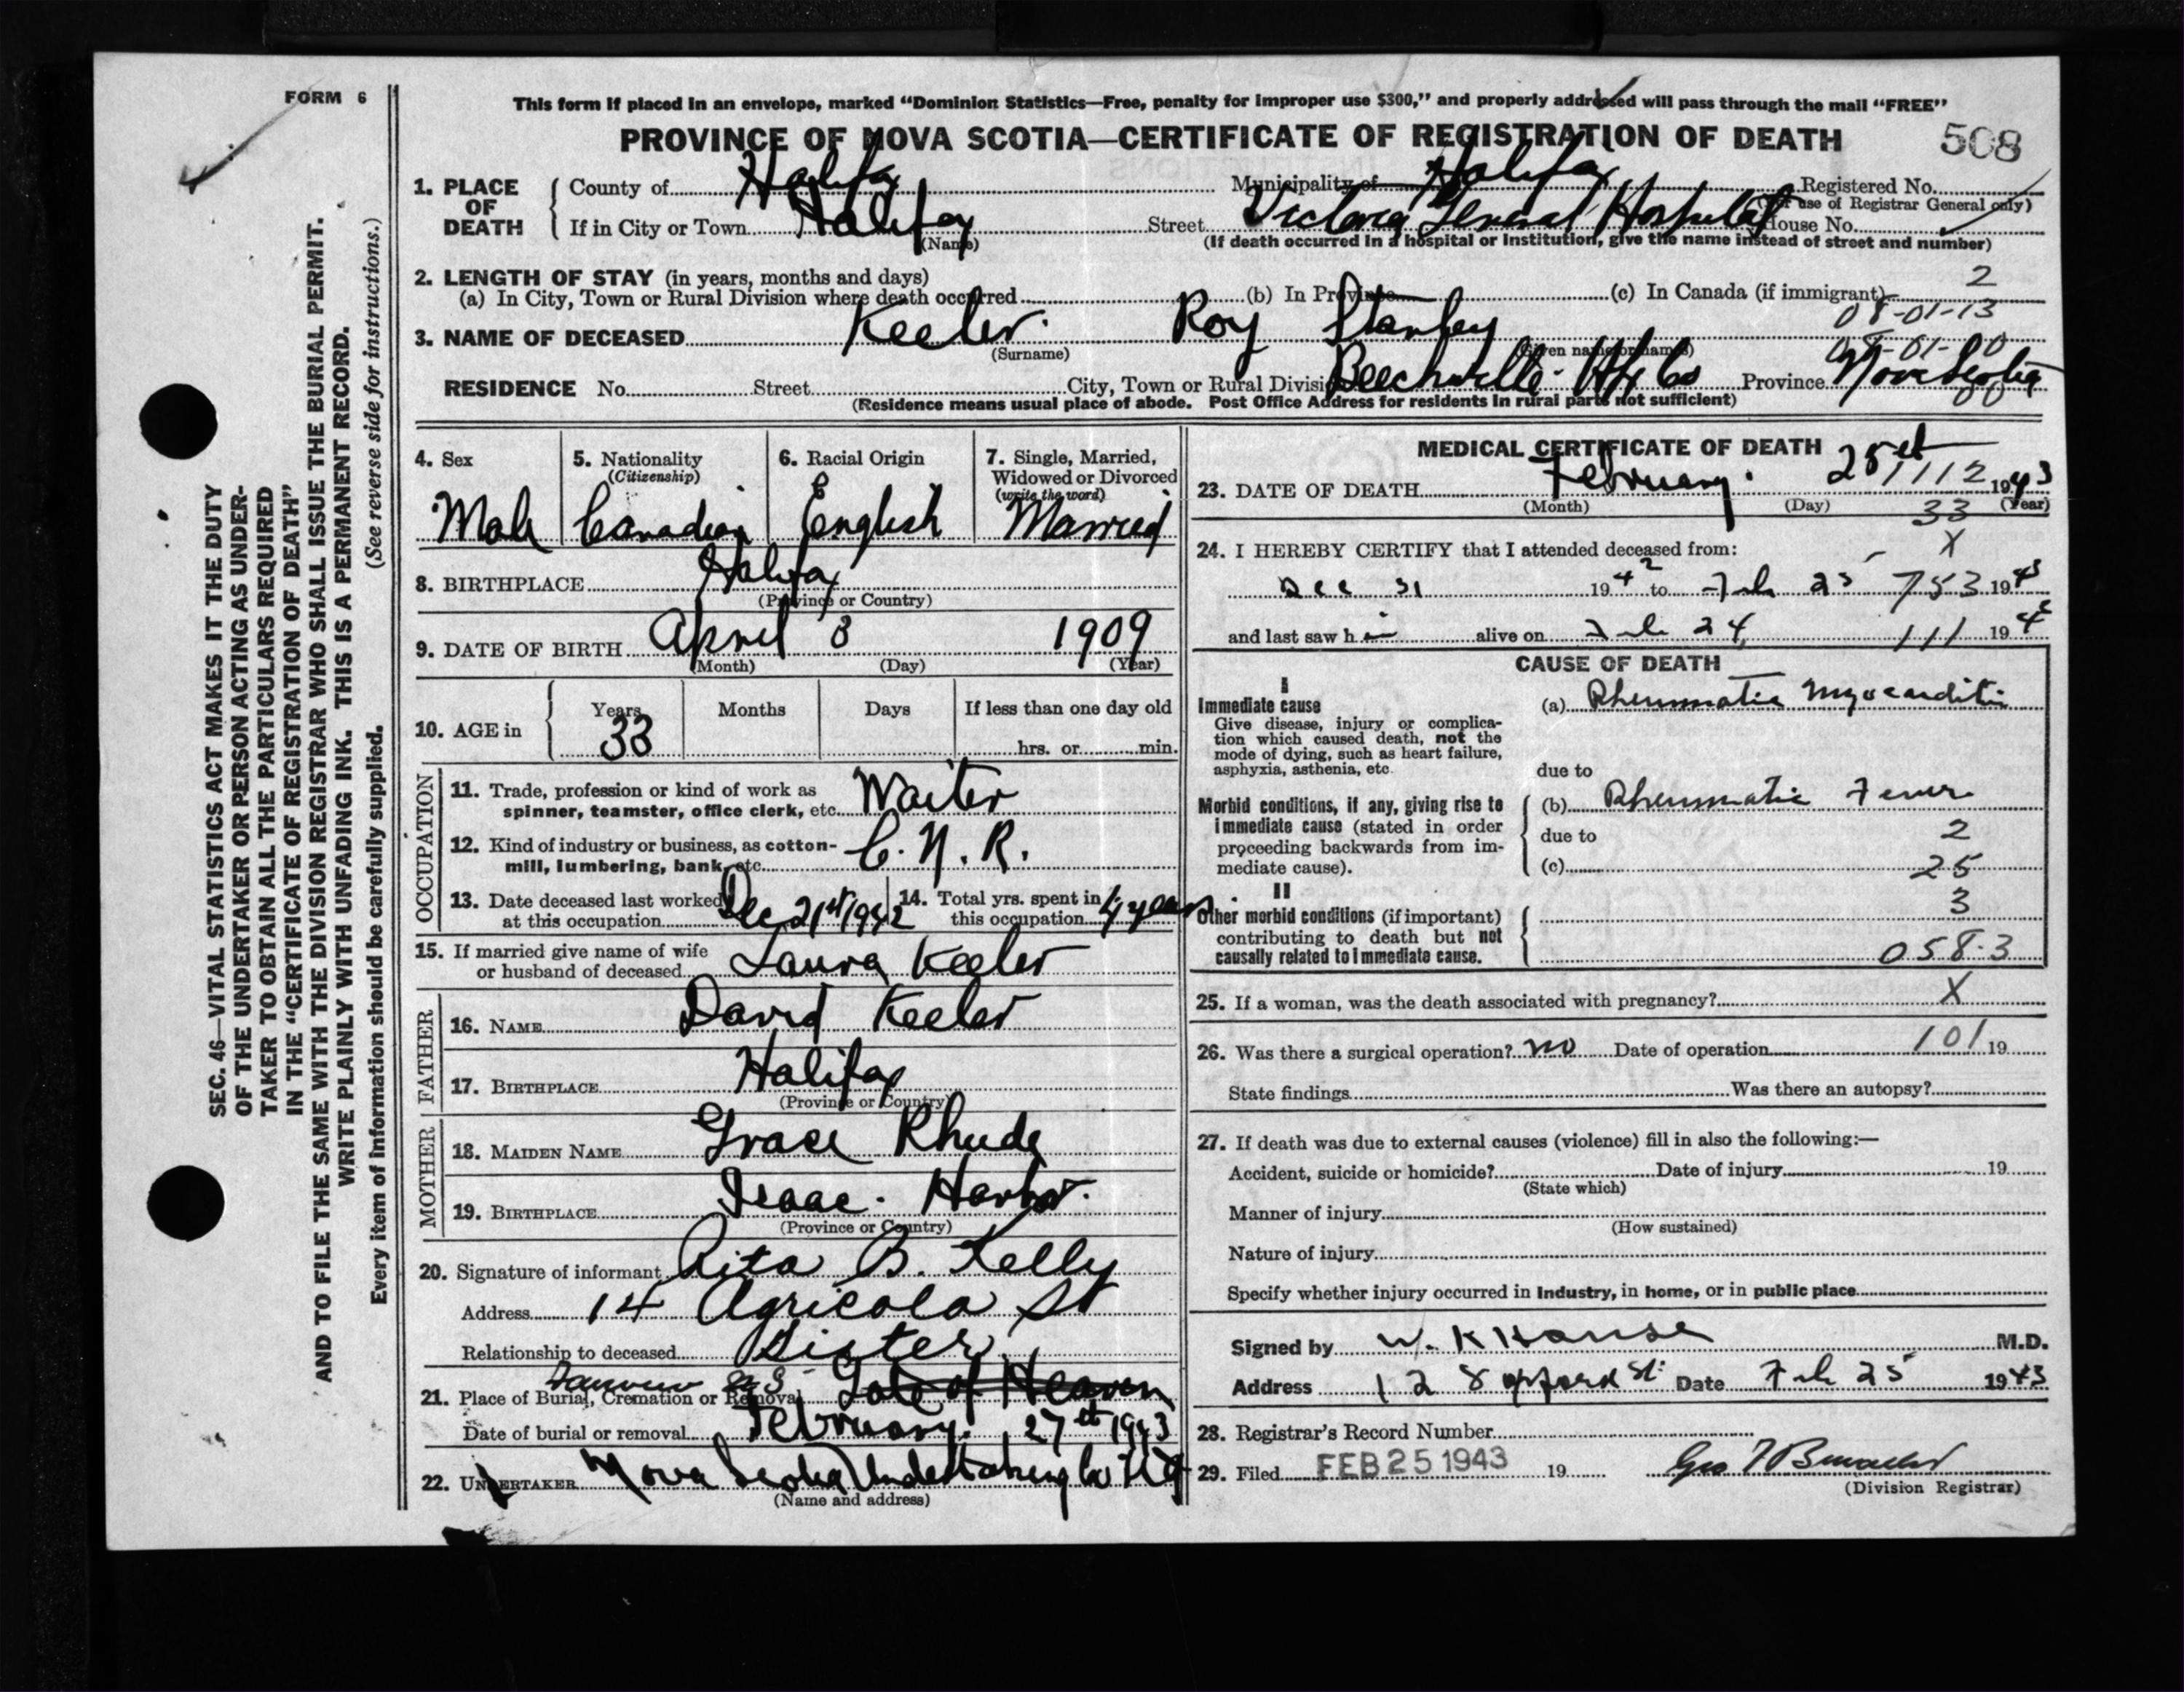 FORM 6
This form if placed in an envelope, marked “Dominion Statistics—Free, penalty for improper use $300,” and properly addressed will pass through the mail “FREE”
PROVINCE OF NOVA SCOTIA—CERTIFICATE OF REGISTRATION OF DEATH 508
1. PLACE OF DEATH
County of Halifax Municipality of Halifax Registered No.
(For use of Registrar General only)
If in City or Town Halifax Street Victoria General Hospital House No.
(Name) (If death occurred in a hospital or institution, give the name instead of street and number)
2. LENGTH OF STAY (in years, months and days) 2
(a) In City, Town or Rural Division where death occurred (b) In Province (c) In Canada (if immigrant)
08-01-13
3. NAME OF DECEASED Keeler Roy Stanley
(Surname) (Given name or names)
RESIDENCE No. Street City, Town or Rural Division Beechville Hfx Co Province Nova Scotia
(Residence means usual place of abode. Post Office Address for residents in rural parts not sufficient)
SEC. 46—VITAL STATISTICS ACT MAKES IT THE DUTY
OF THE UNDERTAKER OR PERSON ACTING AS UNDER-
TAKER TO OBTAIN ALL THE PARTICULARS REQUIRED
IN THE “CERTIFICATE OF REGISTRATION OF DEATH”
AND TO FILE THE SAME WITH THE DIVISION REGISTRAR WHO SHALL ISSUE THE BURIAL PERMIT.
WRITE PLAINLY WITH UNFADING INK. THIS IS A PERMANENT RECORD.
Every item of information should be carefully supplied. (See reverse side for instructions.)
4. Sex 5. Nationality 6. Racial Origin 7. Single, Married,
(Citizenship) Widowed or Divorced
(write the word)
Male Canadian English Married
8. BIRTHPLACE Halifax
(Province or Country)
9. DATE OF BIRTH April 8 1909
(Month) (Day) (Year)
10. AGE in Years Months Days If less than one day old
33 hrs. or min.
OCCUPATION
11. Trade, profession or kind of work as
spinner, teamster, office clerk, etc. Waiter
12. Kind of industry or business, as cotton-
mill, lumbering, bank, etc. C. N. R.
13. Date deceased last worked 14. Total yrs. spent in
at this occupation Dec 21st 1942 this occupation 4 years
15. If married give name of wife
or husband of deceased Laura Keeler
FATHER
16. NAME David Keeler
17. BIRTHPLACE Halifax
(Province or Country)
MOTHER
18. MAIDEN NAME Grace Rhude
19. BIRTHPLACE Isaac Harbor
(Province or Country)
20. Signature of informant Rita B. Kelly
Address 14 Agricola St
Relationship to deceased Sister
21. Place of Burial, Cremation or Removal Gate of Heaven
Date of burial or removal February 27th 1943
22. UNDERTAKER Nova Scotia Undertaking Co
(Name and address)
MEDICAL CERTIFICATE OF DEATH
23. DATE OF DEATH February 25 1112 1943
(Month) (Day) (Year)
33
24. I HEREBY CERTIFY that I attended deceased from: X
Dec 31 1942 to Feb 25 753 1943
and last saw him alive on Feb 24 111 194
CAUSE OF DEATH
I
Immediate cause
(a) Rheumatic Myocarditis
Give disease, injury or complica-
tion which caused death, not the
mode of dying, such as heart failure,
asphyxia, asthenia, etc.
due to
Morbid conditions, if any, giving rise to
immediate cause (stated in order
proceeding backwards from im-
mediate cause).
(b) Rheumatic Fever
due to 2
(c) 25
II
3
Other morbid conditions (if important)
contributing to death but not
causally related to immediate cause. 058.3
25. If a woman, was the death associated with pregnancy? X
26. Was there a surgical operation? no Date of operation 101 19
State findings Was there an autopsy?
27. If death was due to external causes (violence) fill in also the following:—
Accident, suicide or homicide? Date of injury 19
(State which)
Manner of injury
(How sustained)
Nature of injury
Specify whether injury occurred in Industry, in home, or in public place
Signed by W. K House M.D.
Address Date Feb 25 1943
28. Registrar's Record Number
29. Filed FEB 25 1943 19
(Division Registrar)